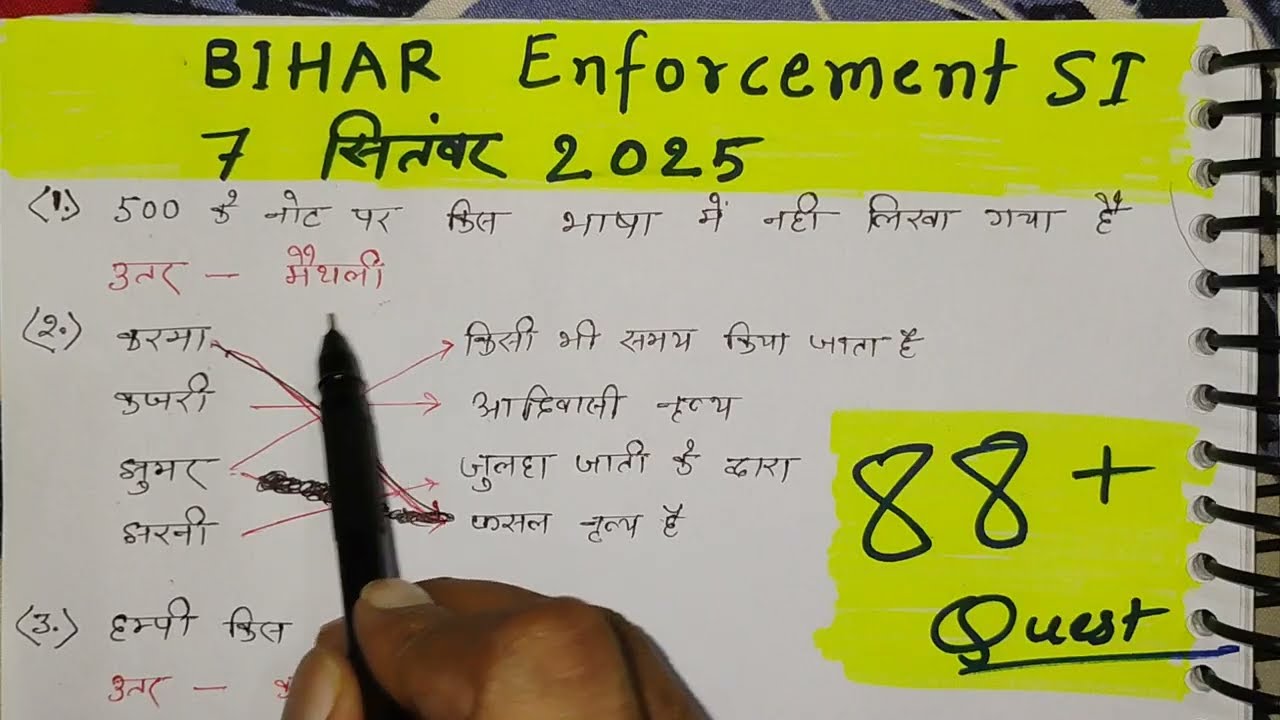 BIHAR Enforcement SI
7 सितंबर 2025
(1.) 500 के नोट पर किस भाषा में नही लिखा गया है
उतर - मैथली
(2.) करमा किसी भी समय किया जाता है
कजरी आदिवासी नृत्य
झुमर जुलहा जाती के द्वारा
झरनी फसल नृत्य है
88+
Quest
(3.) हम्पी किस
उतर -